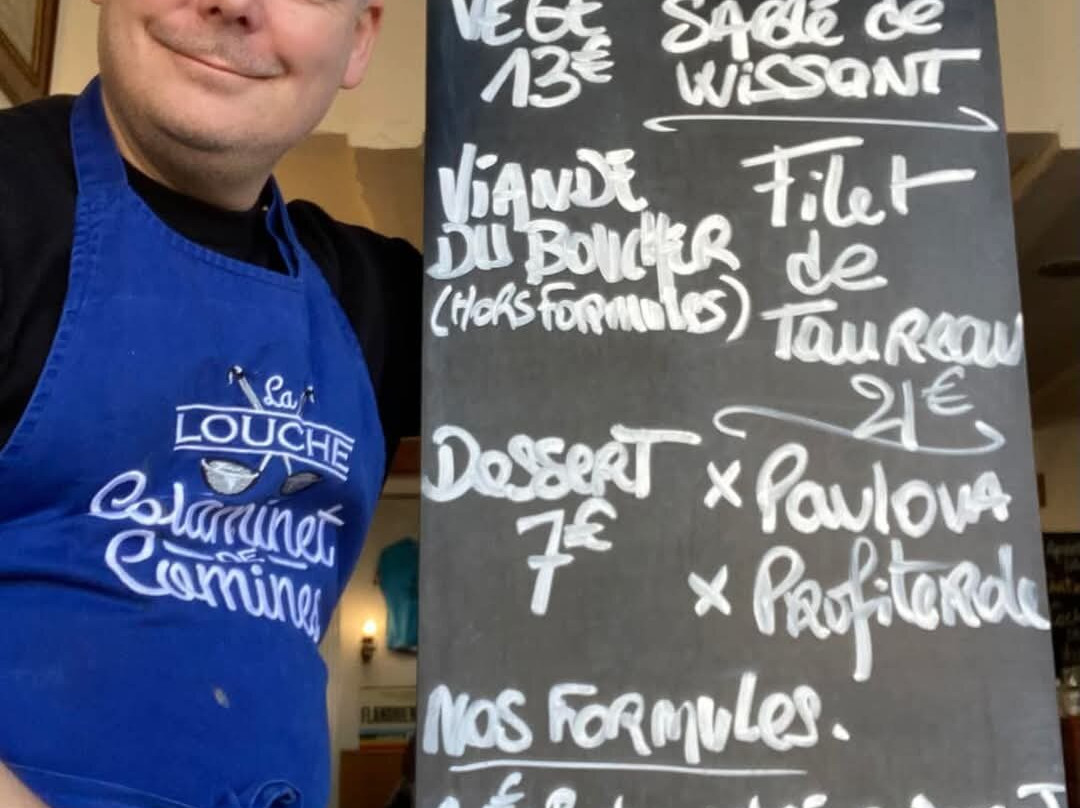 VEGE
13€
SABLÉ de
WISSANT
VIANDE
DU BOUCHER
(HORS FORMULES)
Filet
de
TAUREAU
21€
DESSERT
7€
x Pavlova
x Profiterole
NOS FORMULES.
La
LOUCHE
Calaminet
DE
Comines
FLANDRIEN